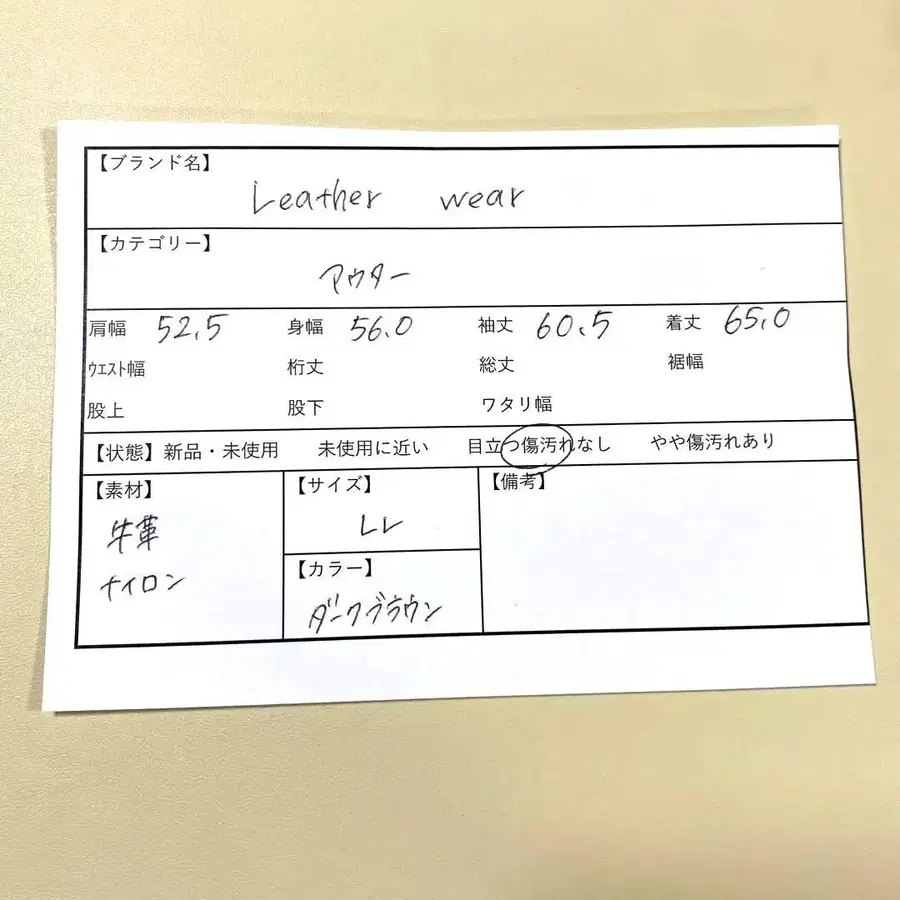 【ブランド名】
Leather wear
【カテゴリー】
アウター
肩幅 52.5 身幅 56.0 袖丈 60.5 着丈 65.0
ｳｴｽﾄ幅 裄丈 総丈 裾幅
股上 股下 ワタリ幅
【状態】新品・未使用 未使用に近い 目立つ傷汚れなし やや傷汚れあり
【素材】
牛革
ナイロン
【サイズ】
LL
【カラー】
ダークブラウン
【備考】